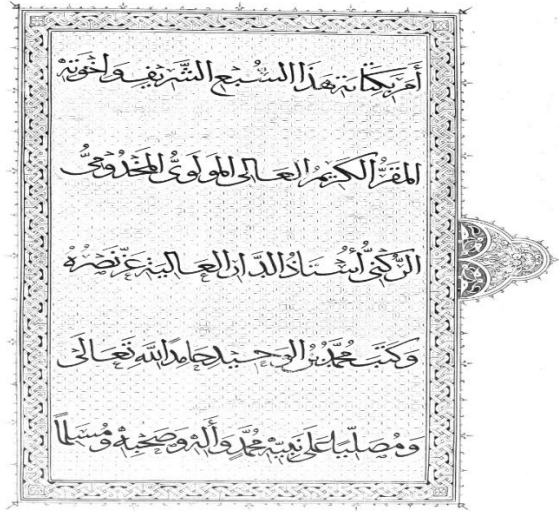 أَمَرَ بِكِتَابَةِ هَذَا السُّبْعِ الشَّرِيفِ وَإِخْوَتِهِ
المَقَرُّ الكَرِيمُ العَالِى المَولَوِىُّ المَخْدُومِىُّ
الرُّكْنِىُّ أُسْتَاذُ الدَّارِ العَالِيَةِ عَزَّ نَصْرُهُ
وَكَتَبَ مُحَمَّدُ بْنُ الوَحِيدِ حَامِدًا اللهَ تَعَالَى
وَمُصَلِّيًا عَلَى نَبِيِّهِ مُحَمَّدٍ وَألِهِ وَصَحْبِهِ وَمُسَلِّمًا